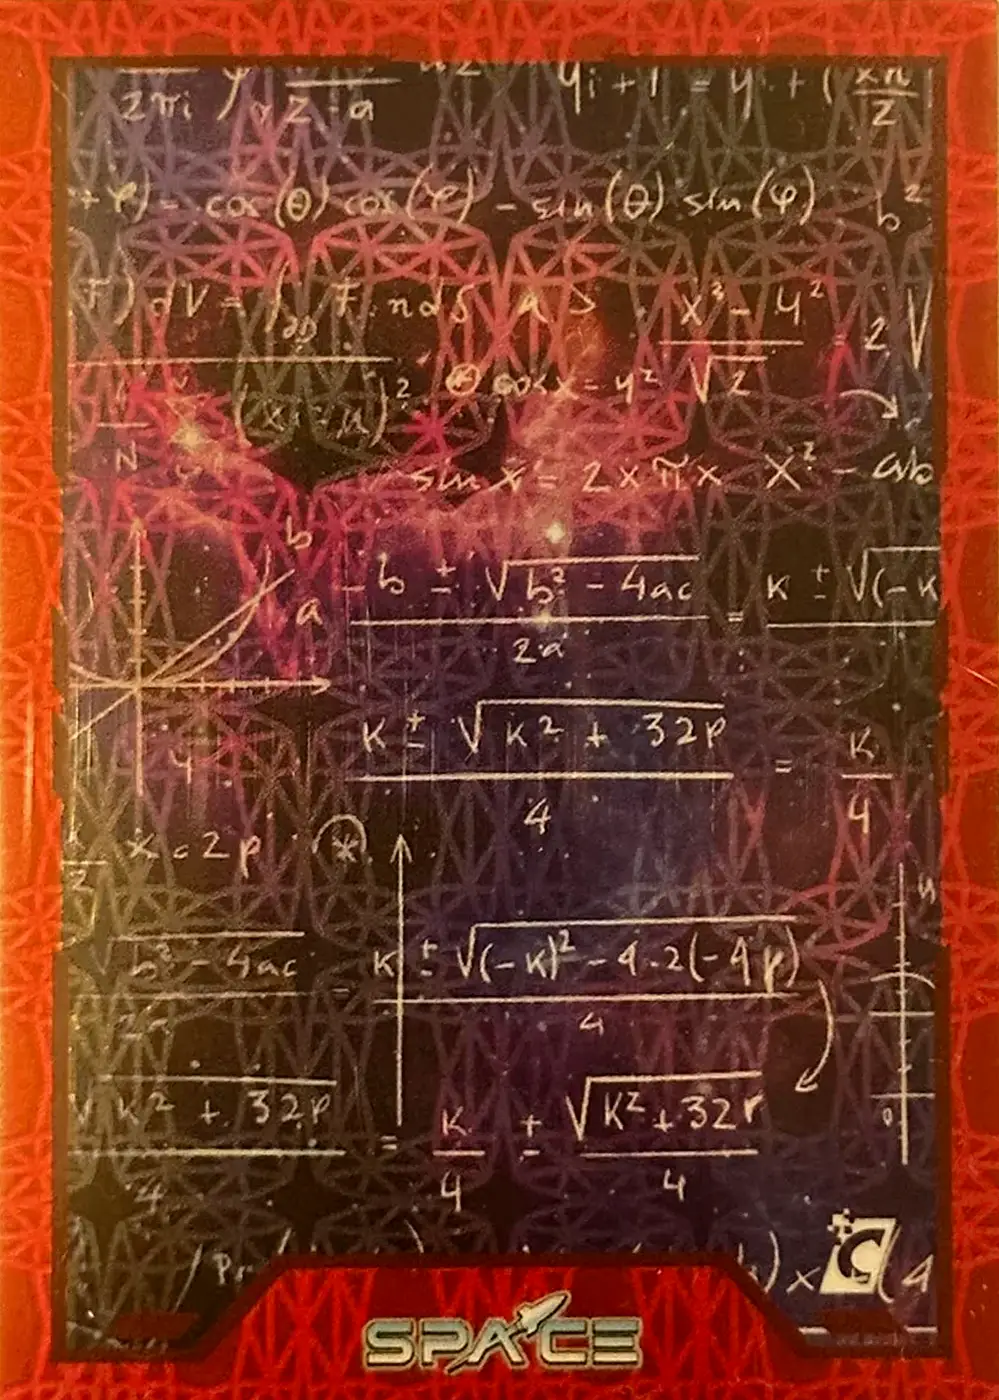 2πi
2 · a
yi + 1 = yi + ( xn / 2
+ φ) - cos(θ) cos(φ) - sin(θ) sin(φ) b²
F) dV = ∫∂D F · n dS a > x³ - y² / √2 = 2 √
cos x = y²
N
sin x = 2 x π x X² - ab
b
a
-b ± √b² - 4ac / 2a = K ± √(-K
y
K ± √K² + 32P / 4 = K / 4
x = 2p *
2
b² - 4ac / 2a = K ± √(-K)² - 4 · 2(-4p) / 4
√K² + 32P / 4 = K / 4 ± √K² + 32P / 4
0
) x ( 4
C
SPACE